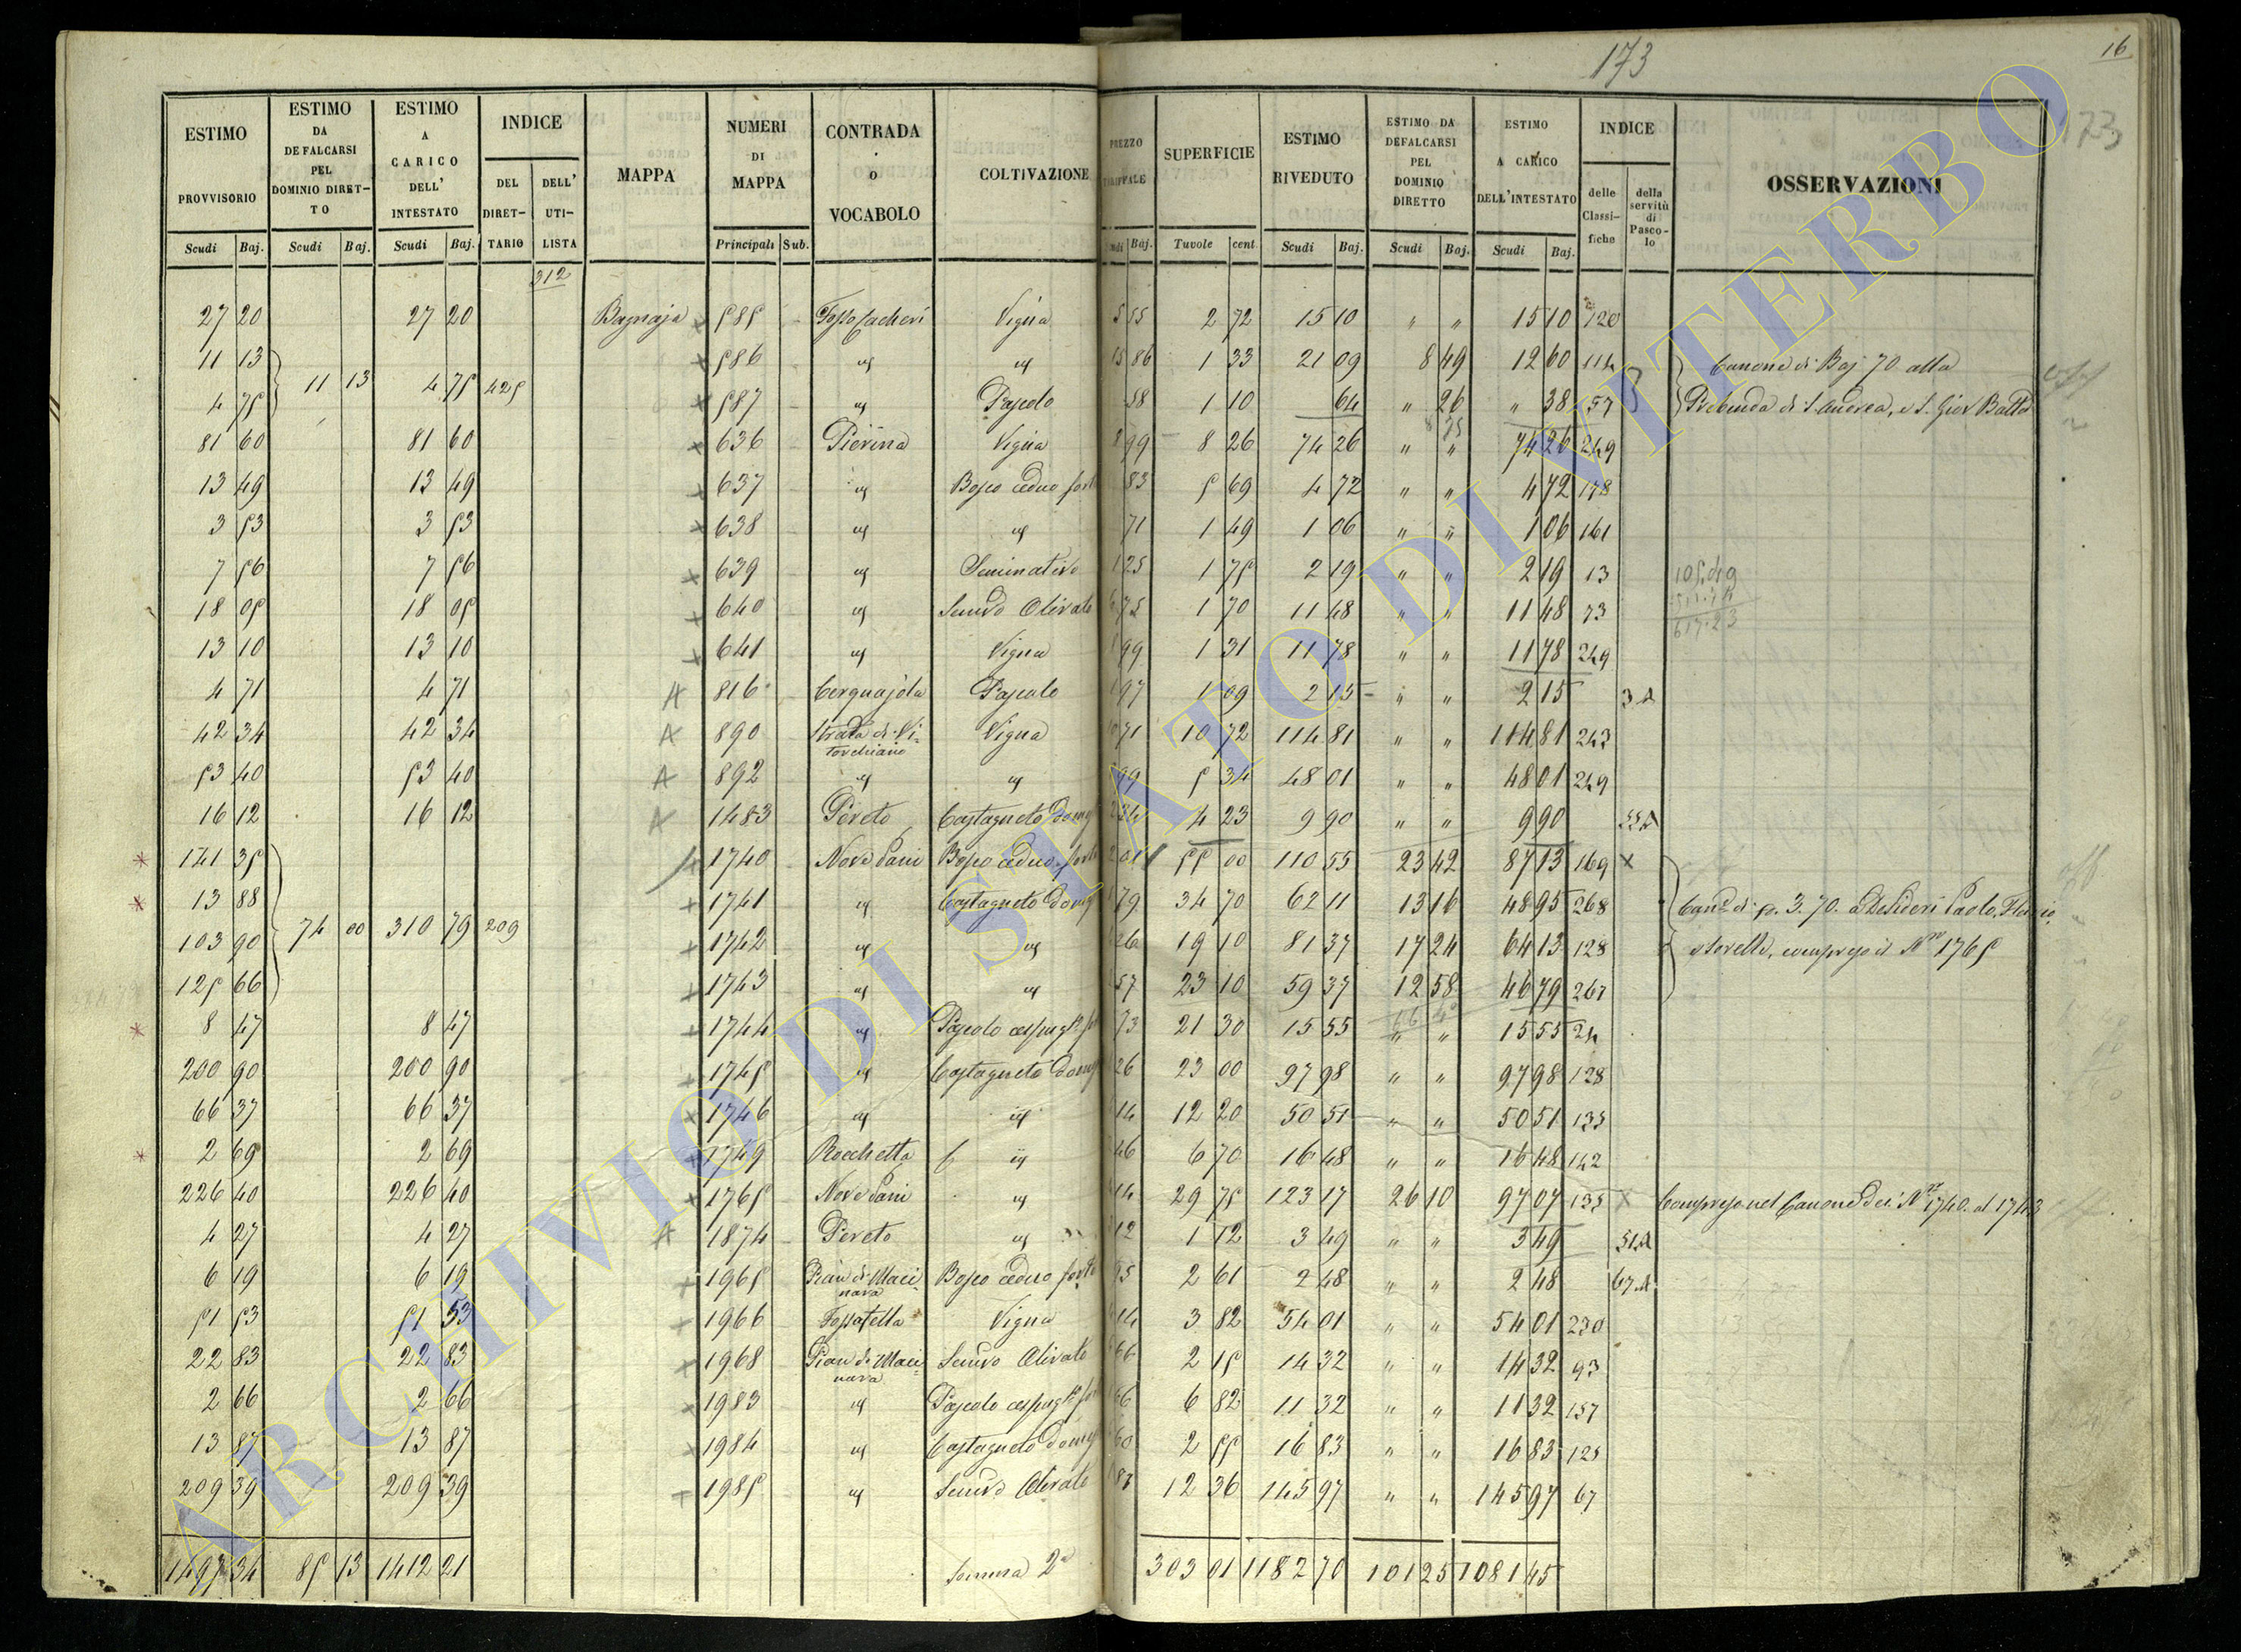 173
16
173
ESTIMO PROVVISORIO
ESTIMO DA DEFALCARSI PEL DOMINIO DIRET- TO
ESTIMO A CARICO DELL' INTESTATO
INDICE
DEL DIRET- TARIO
DELL' UTI- LISTA
MAPPA
NUMERI DI MAPPA
CONTRADA O VOCABOLO
COLTIVAZIONE
PREZZO
SUPERFICIE
ESTIMO RIVEDUTO
ESTIMO DA DEFALCARSI PEL DOMINIO DIRETTO
ESTIMO A CARICO DELL'INTESTATO
INDICE
delle Classi- fiche
della servitù di Pasco- lo
OSSERVAZIONI
Scudi Baj. Scudi Baj. Scudi Baj. Principali Sub. Baj. Tavole cent. Scudi Baj. Scudi Baj. Scudi Baj.
312
27 20 27 20 Bagnaja 585 Vigna 2 72 15 10 " " 15 10 120
11 13 586 " " 1 33 21 09 8 49 12 60 114 Canone di Baj 70 alla
11 13 4 75 425
4 75 587 " Pascolo 58 1 10 64 " 26 " 38 57 Prebenda di S. Andrea, e S. Giov Batta
81 60 81 60 636 Pierina Vigna 99 8 26 74 26 " " 74 26 249
13 49 13 49 637 " Bosco ceduo forte 83 5 69 4 72 " " 4 72 178
3 53 3 53 638 " " 71 1 49 1 06 " " 1 06 161
7 56 7 56 639 " Seminativo 1 25 1 75 2 19 " " 2 19 13
18 05 18 05 640 " Semvo Olivato 6 75 1 70 11 48 " " 11 48 73
13 10 13 10 641 " Vigna 99 1 31 11 78 " " 11 78 249
4 71 4 71 816 Cerquajola Pascolo 97 1 09 2 15 " " 2 15
42 34 42 34 890 Strada di Vi= torchiano Vigna 71 10 72 114 81 " " 114 81 243
53 40 53 40 892 " " 99 5 34 48 01 " " 48 01 249
16 12 16 12 1483 Pereto Castagneto Domo 4 23 9 90 " " 9 90
141 35 1740 Bosco ceduo forte 2 01 55 00 110 55 23 42 87 13 169
13 88 1741 " Castagneto Domo 79 34 70 62 11 13 16 48 95 268 Cane di p. 3. 70. a Desideri Paolo,
74 00 310 79 209
103 90 1742 " " 26 19 10 81 37 17 24 64 13 128 e Sorelle, compreso il No 1765
125 66 1743 " " 57 23 10 59 37 12 58 46 79 267
8 47 8 47 1744 " Pascolo cespugto 73 21 30 15 55 " " 15 55 24
200 90 200 90 1745 " Castagneto Domo 26 23 00 97 98 " " 97 98 128
66 37 66 37 1746 " " 14 12 20 50 51 " " 50 51 135
2 69 2 69 1749 Rocchetta " 46 6 70 16 48 " " 16 48 142
226 40 226 40 1765 " 14 29 75 123 17 26 10 97 07 135 Compreso nel Canone dei Ni 1740. al 1743
4 27 4 27 1874 Pereto " 12 1 12 3 49 " " 3 49
6 19 6 19 1965 Pian di Maci= nara Bosco ceduo forte 95 2 61 2 48 " " 2 48
51 53 51 53 1966 Fossatella Vigna 14 3 82 54 01 " " 54 01 230
22 83 22 83 1968 Pian di Maci= nara Semvo Olivato 66 2 15 14 32 " " 14 32 93
2 66 2 66 1983 " Pascolo cespugto 66 6 82 11 32 " " 11 32 157
13 87 13 87 1984 " Castagneto Domo 60 2 55 16 83 " " 16 83 125
209 39 209 39 1985 " Semvo Olivato 12 36 145 97 " " 145 97 67
1497 34 85 13 1412 21 Somma 2a 303 01 1182 70 101 25 1081 45
ARCHIVIO DI STATO DI VITERBO